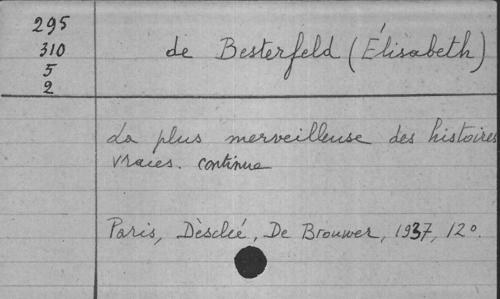 295
310
5
2
de Besterfeld (Élisabeth)
La plus merveilleuse des histoires
vraies. continue
Paris, Dèsclée, De Brouwer, 1937, 12º.